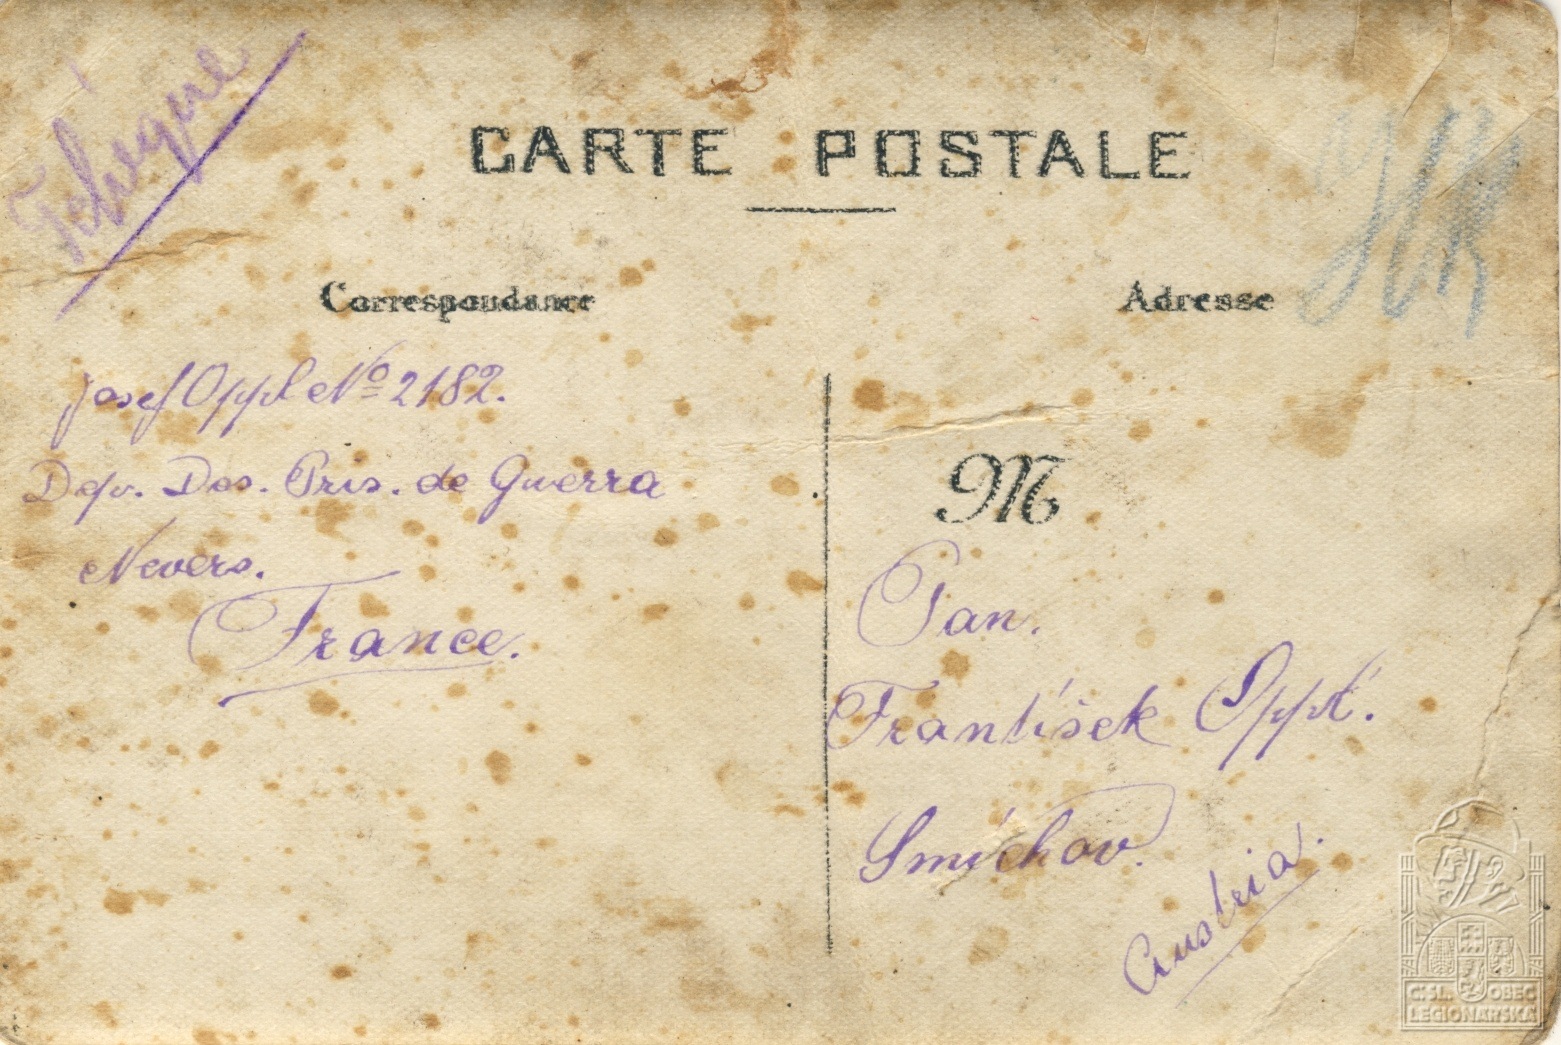 Tchéque
CARTE POSTALE
Correspondance
Adresse
Josef Oppl No 2182.
Dep. Des. Pris. de Guerra
Nevers.
France.
M
Pan.
František Oppl.
Smíchov.
Austria.
ČSL. OBEC
LEGIONÁŘSKÁ